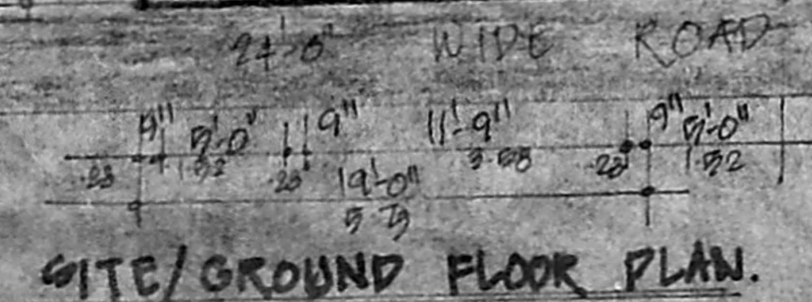 24'-0" WIDE ROAD
9" 5'-0" 9" 11'-9" 9" 5'-0"
.23 1.52 .23 3.58 .23 1.52
19'-0"
5.79
SITE/GROUND FLOOR PLAN.